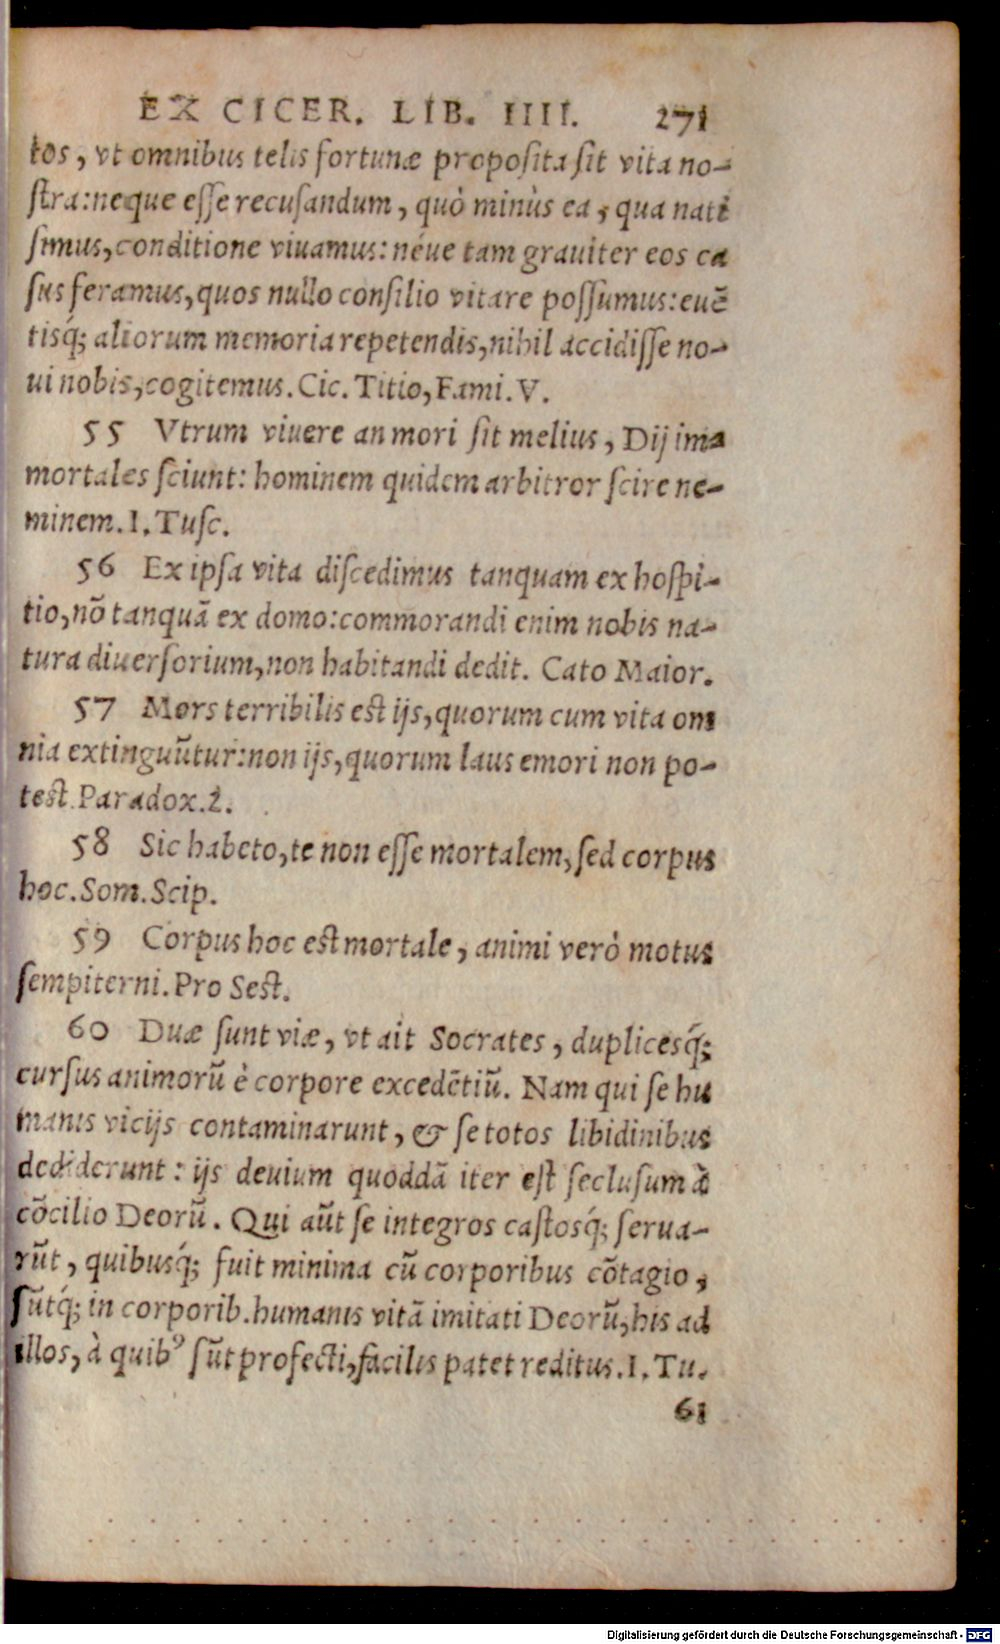 EX CICER. LIB. IIII. 271
tos, vt omnibus telis fortunæ proposita sit vita no-
stra:neque esse recusandum, quò minùs ea, qua nati
simus,conditione viuamus: néue tam grauiter eos ca
sus feramus,quos nullo consilio vitare possumus:euẽ
tisq́; aliorum memoria repetendis,nihil accidisse no-
ui nobis,cogitemus. Cic. Titio,Fami. V.
55 Vtrum viuere an mori sit melius, Dij im
mortales sciunt: hominem quidem arbitror scire ne-
minem. I. Tusc.
56 Ex ipsa vita discedimus tanquam ex hospi-
tio,nõ tanquã ex domo:commorandi enim nobis na-
tura diuersorium,non habitandi dedit. Cato Maior.
57 Mors terribilis est ijs,quorum cum vita om
nia extinguũtur:non ijs,quorum laus emori non po-
test. Paradox. 2.
58 Sic habeto,te non esse mortalem,sed corpus
hoc. Som. Scip.
59 Corpus hoc est mortale, animi verò motus
sempiterni. Pro Sest.
60 Duæ sunt viæ, vt ait Socrates, duplicesq́;
cursus animorũ è corpore excedẽtiũ. Nam qui se hu
manis vicijs contaminarunt, & se totos libidinibus
dediderunt: ijs deuium quoddã iter est seclusum à
cõcilio Deorũ. Qui aũt se integros castosq́; serua-
rũt, quibusq́; fuit minima cũ corporibus cõtagio,
sũtq́; in corporib. humanis vitã imitati Deorũ,his ad
illos, à quibꝰ sũt profecti,facilis patet reditus. I. Tu.
61
Digitalisierung gefördert durch die Deutsche Forschungsgemeinschaft - DFG